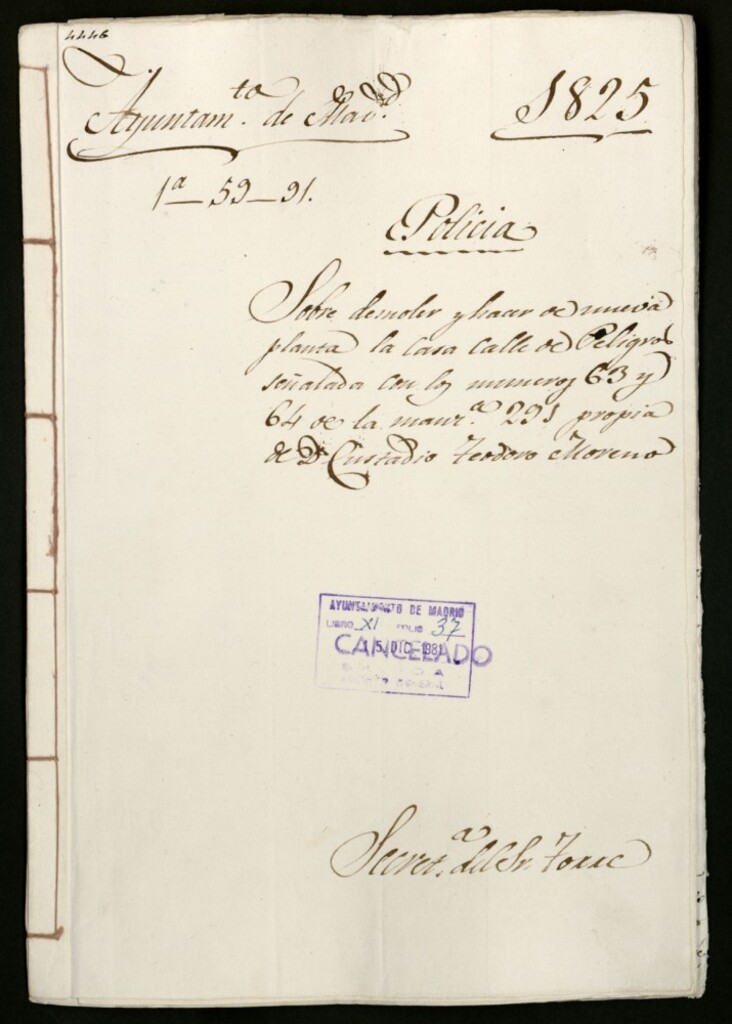 4446
Ayuntam.to de Mad.d
1825
1a—59—91.
Policia
Sobre demoler y hacer de nueva
planta la casa calle de Peligros
señalada con los numeros 63 y
64 de la manz.a 291 propia
de Dn Custadio Teodoro Moreno
AYUNTAMIENTO DE MADRID
LIBRO XI FOLIO 37
CANCELADO
15 DIC. 1981
Secret.a del Sr.